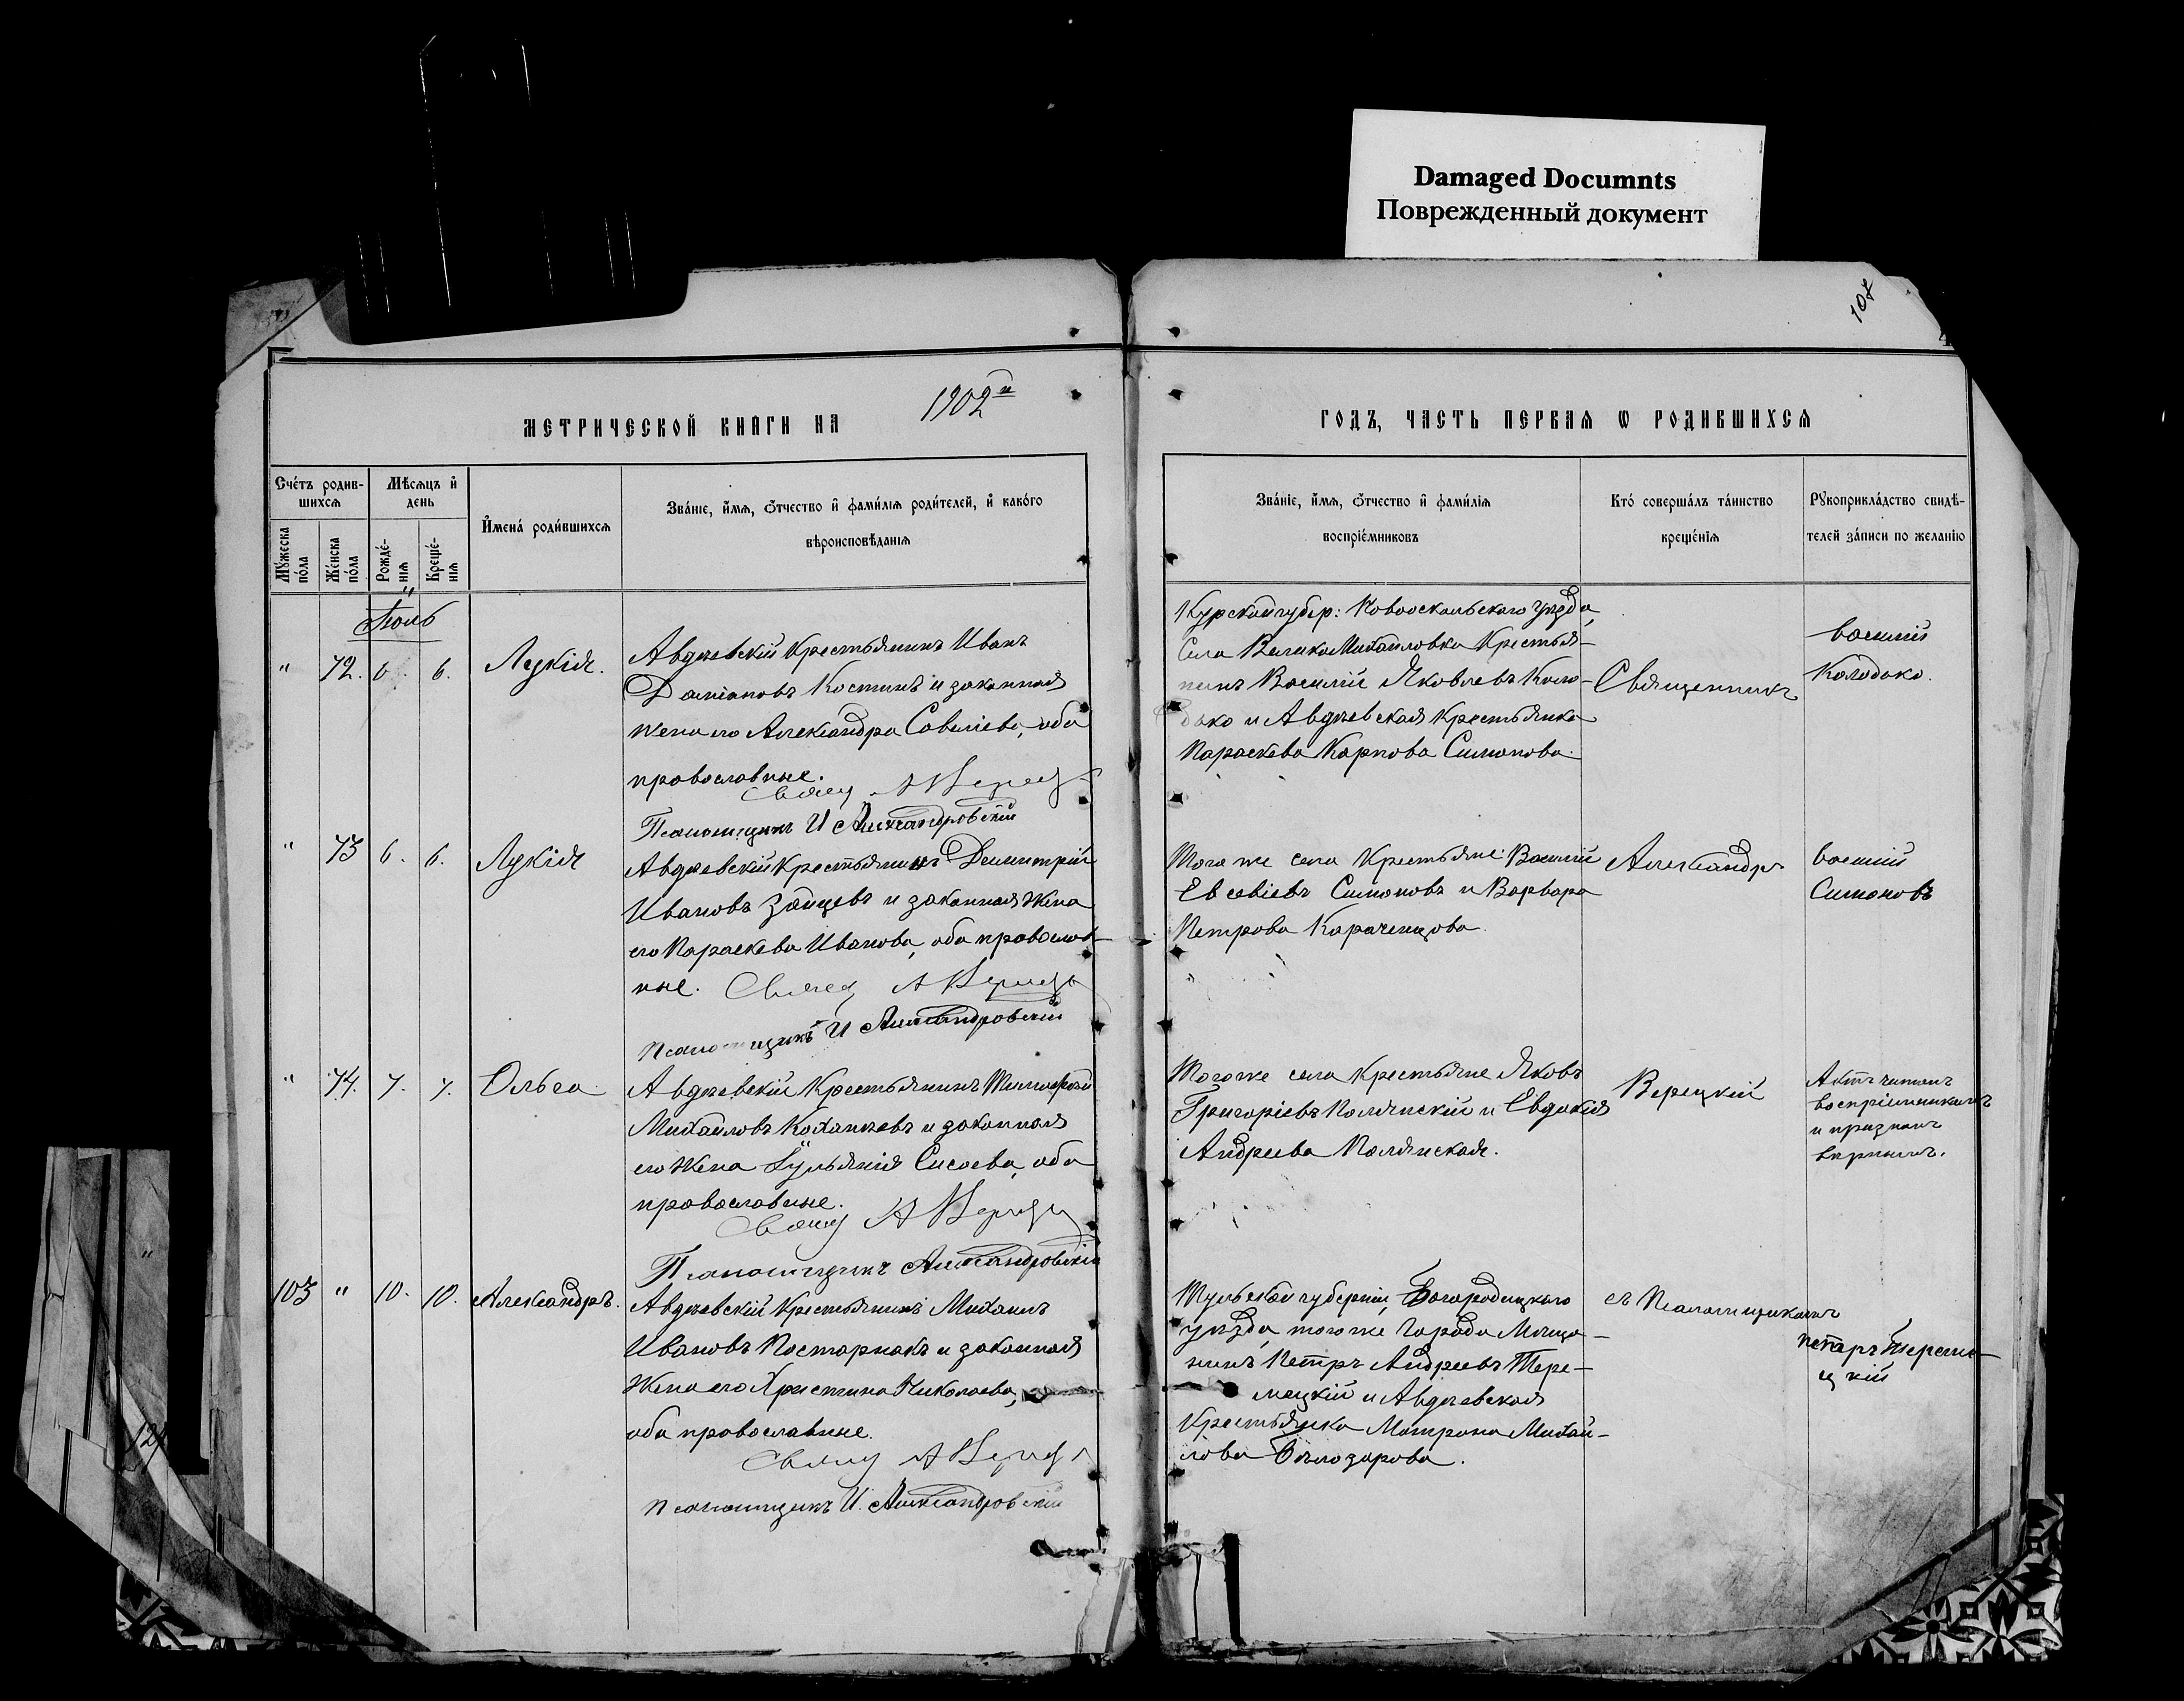 Damaged Documnts
Поврежденный документ
107
МЕТРИЧЕСКОЙ КНИГИ НА 1902й
ГОДЪ, ЧАСТЬ ПЕРВАЯ Ѡ РОДИВШИХСЯ
Счетъ родив-
шихся
Мѣсяцъ и
день
Мужеска
пола
Женска
пола
Рожде-
нія
Креще-
нія
Имена родившихся
Званіе, имя, отчество и фамилія родителей, и какого
вѣроисповѣданія
Званіе, имя, отчество и фамилія
воспріемниковъ
Кто совершалъ таинство
крещенія
Рукоприкладство свидѣ-
телей записи по желанію
" 72. 6. 6. Лукія.
Авдѣевскій крестьянинъ Иванъ
Даміановъ Костинъ и законная
жена его Александра Савеліева, оба
православные.
Свящ А Верец
Псаломщикъ И Александровскій
Курской губер: Новооскольскаго уѣзда,
Села ВеликоМихайловка крестья-
нинъ Василій Яковлевъ Коло-
дько и Авдѣевская крестьянка
Параскева Карпова Симонова.
Священникъ
Василій
Колодько.
" 73 6. 6. Лукія
Авдѣевскій крестьянинъ Димитрій
Ивановъ Зайцевъ и законная жена
его Параскева Иванова, оба православ-
ные. Свящ А Верец
Псаломщикъ И Александровскій
Того же села крестьяне: Василій
Евсевіевъ Симоновъ и Варвара
Петрова Караченцова.
Александръ
Василій
Симоновъ
" 74. 7. 7. Ольга
Авдѣевскій крестьянинъ Тимофей
Михайловъ Коханчевъ и законная
его жена Іульянія Сисоева, оба
православные.
Свящ А Верец
Псаломщикъ Александровскій
Того же села крестьяне Яковъ
Григоріевъ Полянскій и Евдокія
Андреева Полянская.
Верецкій
Актъ читанъ
воспріемникамъ
и признанъ
вѣрнымъ.
103 " 10. 10. Александръ.
Авдѣевскій крестьянинъ Михаилъ
Ивановъ Постарнакъ и законная
жена его Христина Николаева,
оба православные.
Свящ А Верец
Псаломщикъ И. Александровскій
Тульской губерніи, Богородицкаго
уѣзда, того же города Мѣща-
нинъ Петръ Андреевъ Тере-
мецкій и Авдѣевская
крестьянка Матрона Михай-
лова Бѣлозарова.
съ Псаломщикомъ
Петаръ Тереме-
цкій